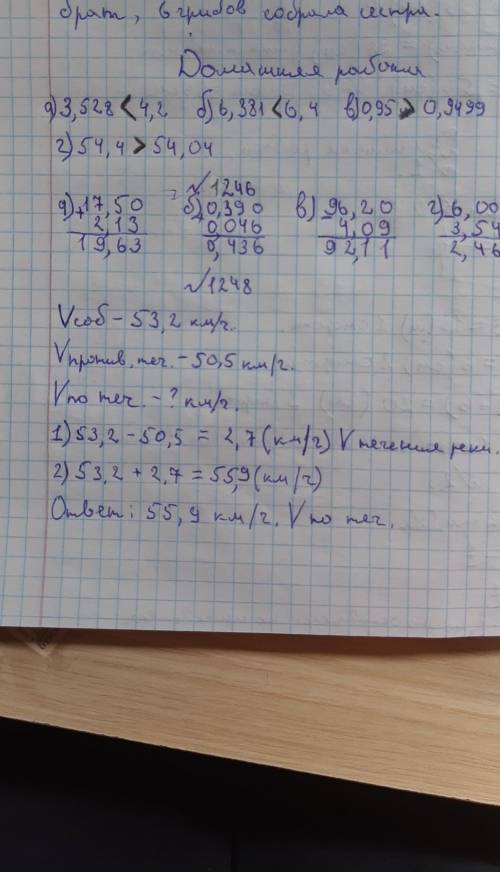 брат, в грибов собрала сестра.
Домашняя работа
а) 3,528 < 4,2 б) 6,381 < 6,4 в) 0,95 > 0,9499
г) 54,4 > 54,04
√1246
а) +17,50 б) +0,390 в) -96,20 г) -6,00
2,13 0,046 4,09 3,54
19,63 0,436 92,11 2,46
√1248
Vсоб - 53,2 км/ч.
Vпротив. теч. - 50,5 км/ч.
Vпо теч. - ? км/ч.
1) 53,2 - 50,5 = 2,7 (км/ч) V течения реки.
2) 53,2 + 2,7 = 55,9 (км/ч)
Ответ: 55,9 км/ч. V по теч.